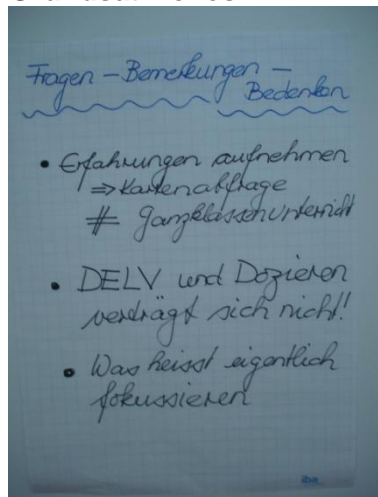 Fragen – Bemerkungen –
Bedenken
• Erfahrungen aufnehmen
⇒ Kartenabfrage
# Ganzklassenunterricht
• DELV und Dozieren
verträgt sich nicht!
• Was heisst eigentlich
fokussieren